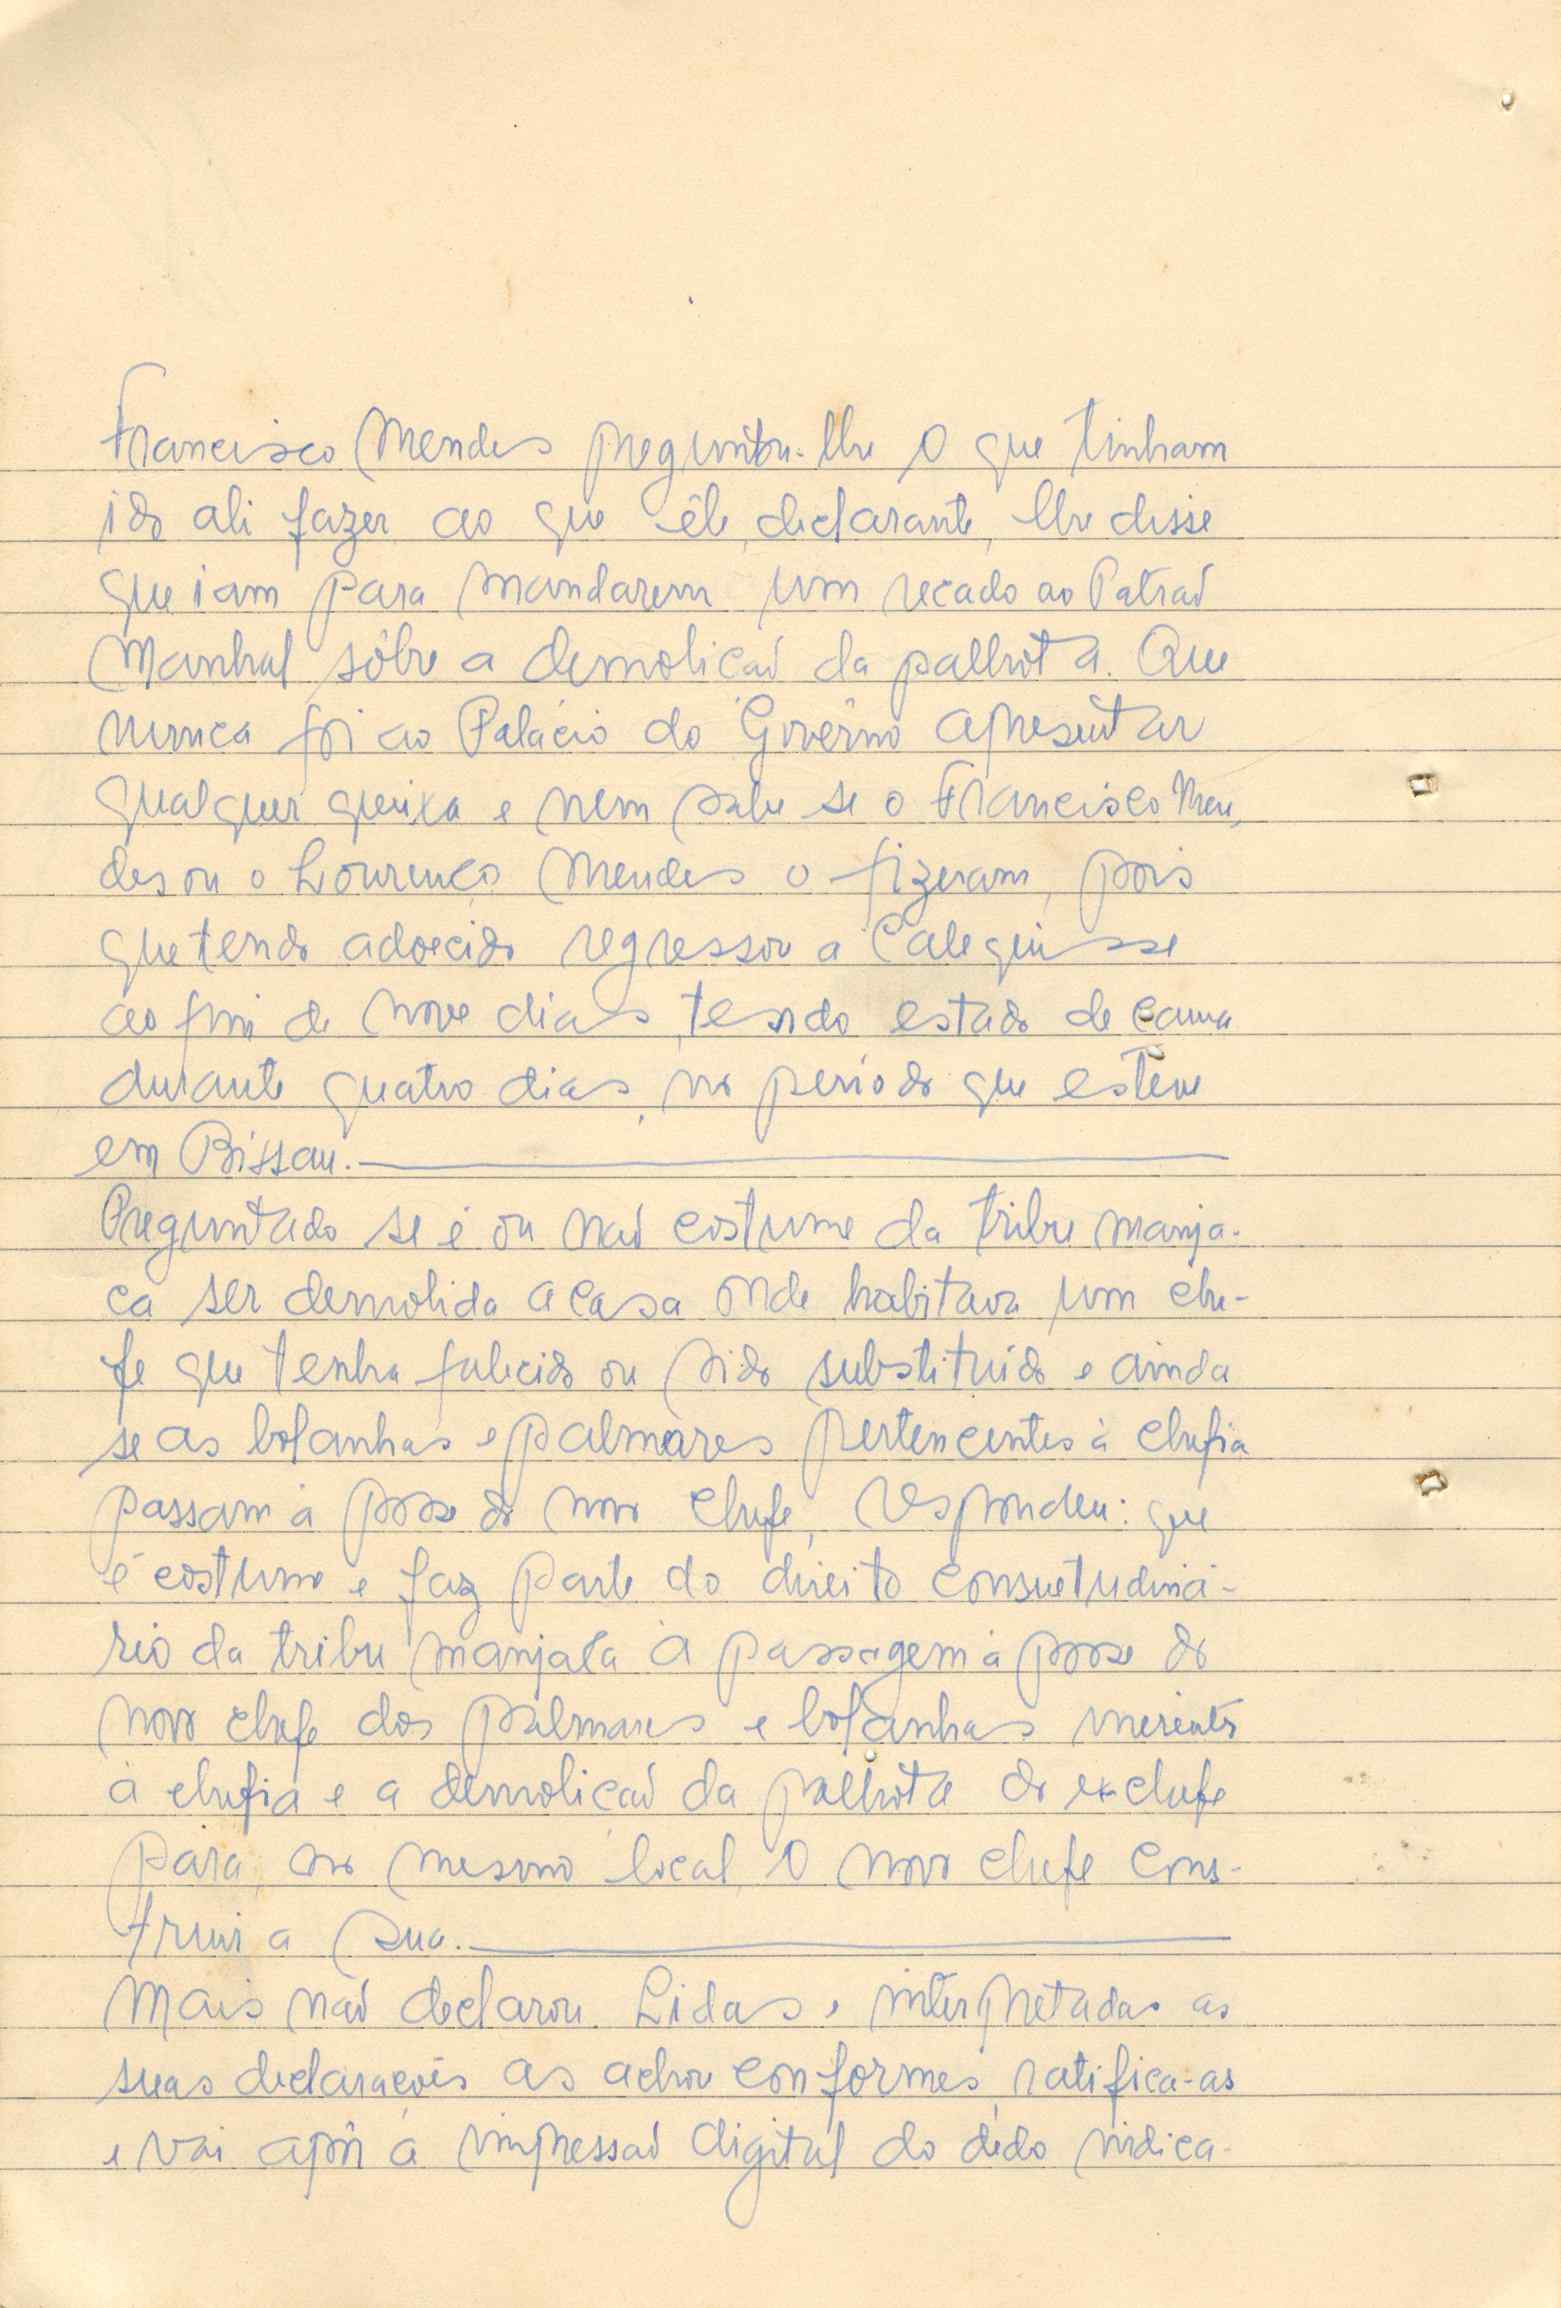 Francisco Mendes preguntou-lhe o que tinham
ido ali fazer ao que êle, declarante, lhe disse
que iam para mandarem um recado ao Patrão
Manhal sôbre a demolição da palhota. Que
nunca foi ao Palácio do Govêrno apresentar
qualquer queixa e nem sabe se o Francisco Men-
des ou o Lourenço Mendes o fizeram, pois
que tendo adoecido regressou a Calequisse
ao fim de nove dias, tendo estado de cama
durante quatro dias, no período que esteve
em Bissau.
Preguntado se é ou não costume da tribu manja-
ca ser demolida a casa onde habitava um che-
fe que tenha falecido ou sido substituído e ainda
se as bolanhas e palmares pertencentes à chefia
passam à posse do novo chefe, respondeu: que
é costume e faz parte do direito consuetudiná-
rio da tribu manjaca a passagem à posse do
novo chefe dos palmares e bolanhas inerentes
à chefia e a demolição da palhota do ex-chefe
para, no mesmo local, o novo chefe cons-
truir a sua.
Mais não declarou. Lidas e interpretadas as
suas declarações as achou conformes, ratifica-as
e vai apôr a impressão digital do dedo indica-